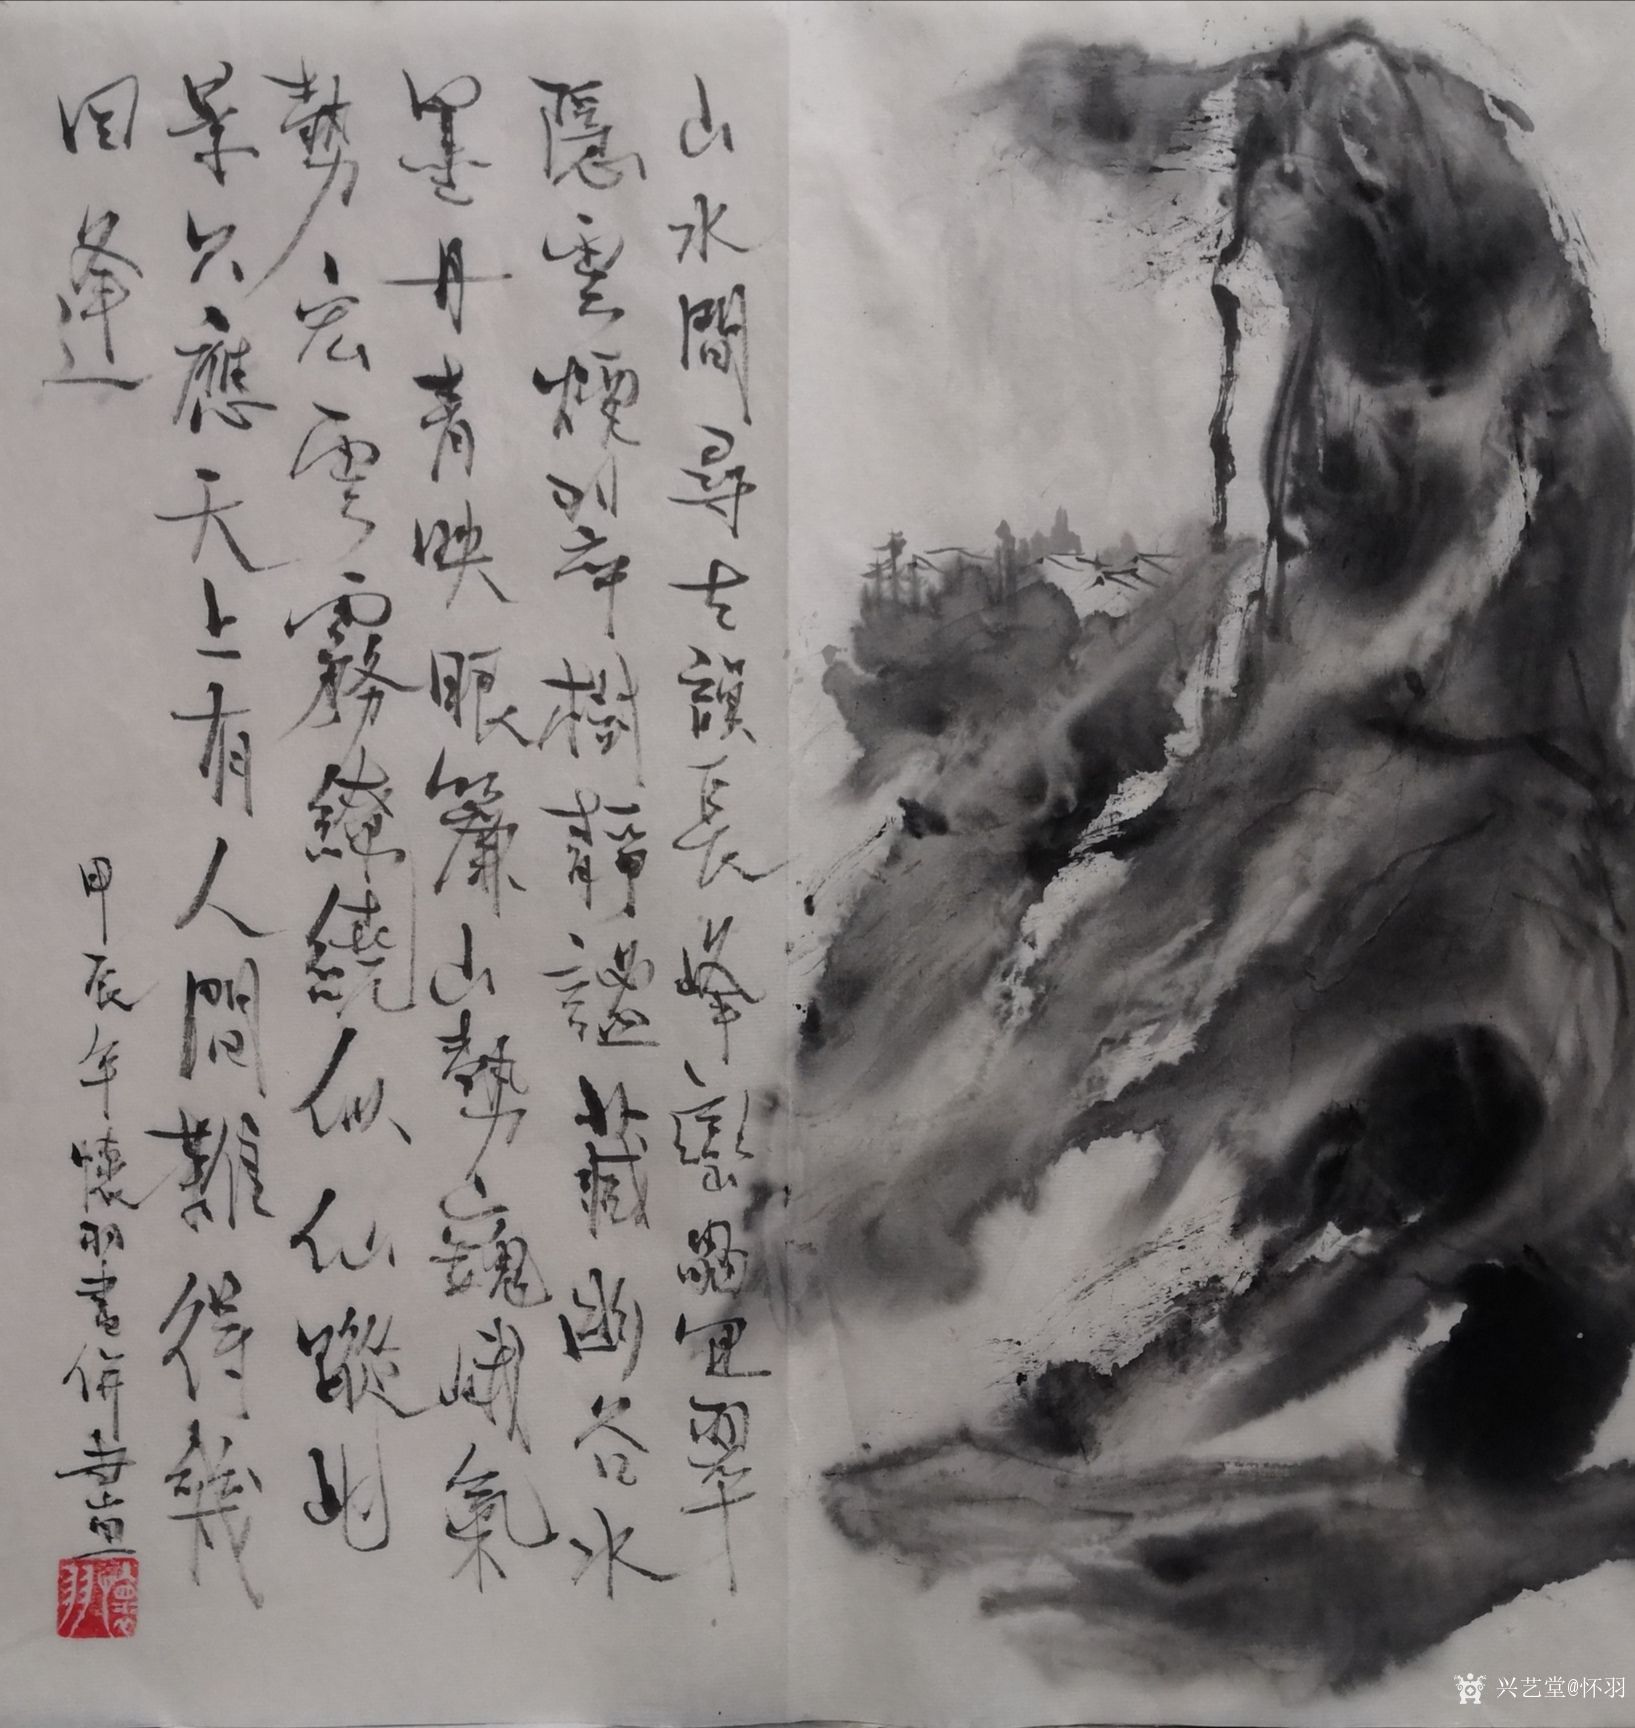 山水間尋古韻長峰巒疊翠
隱雲煙樹靜謐藏幽谷水
墨丹青映眼簾山勢巍峨氣
勢宏雲霧繚繞似仙蹤此
景只應天上有人間難得幾
回逢
甲辰年懷羽書併畫
懷羽
兴艺堂@怀羽